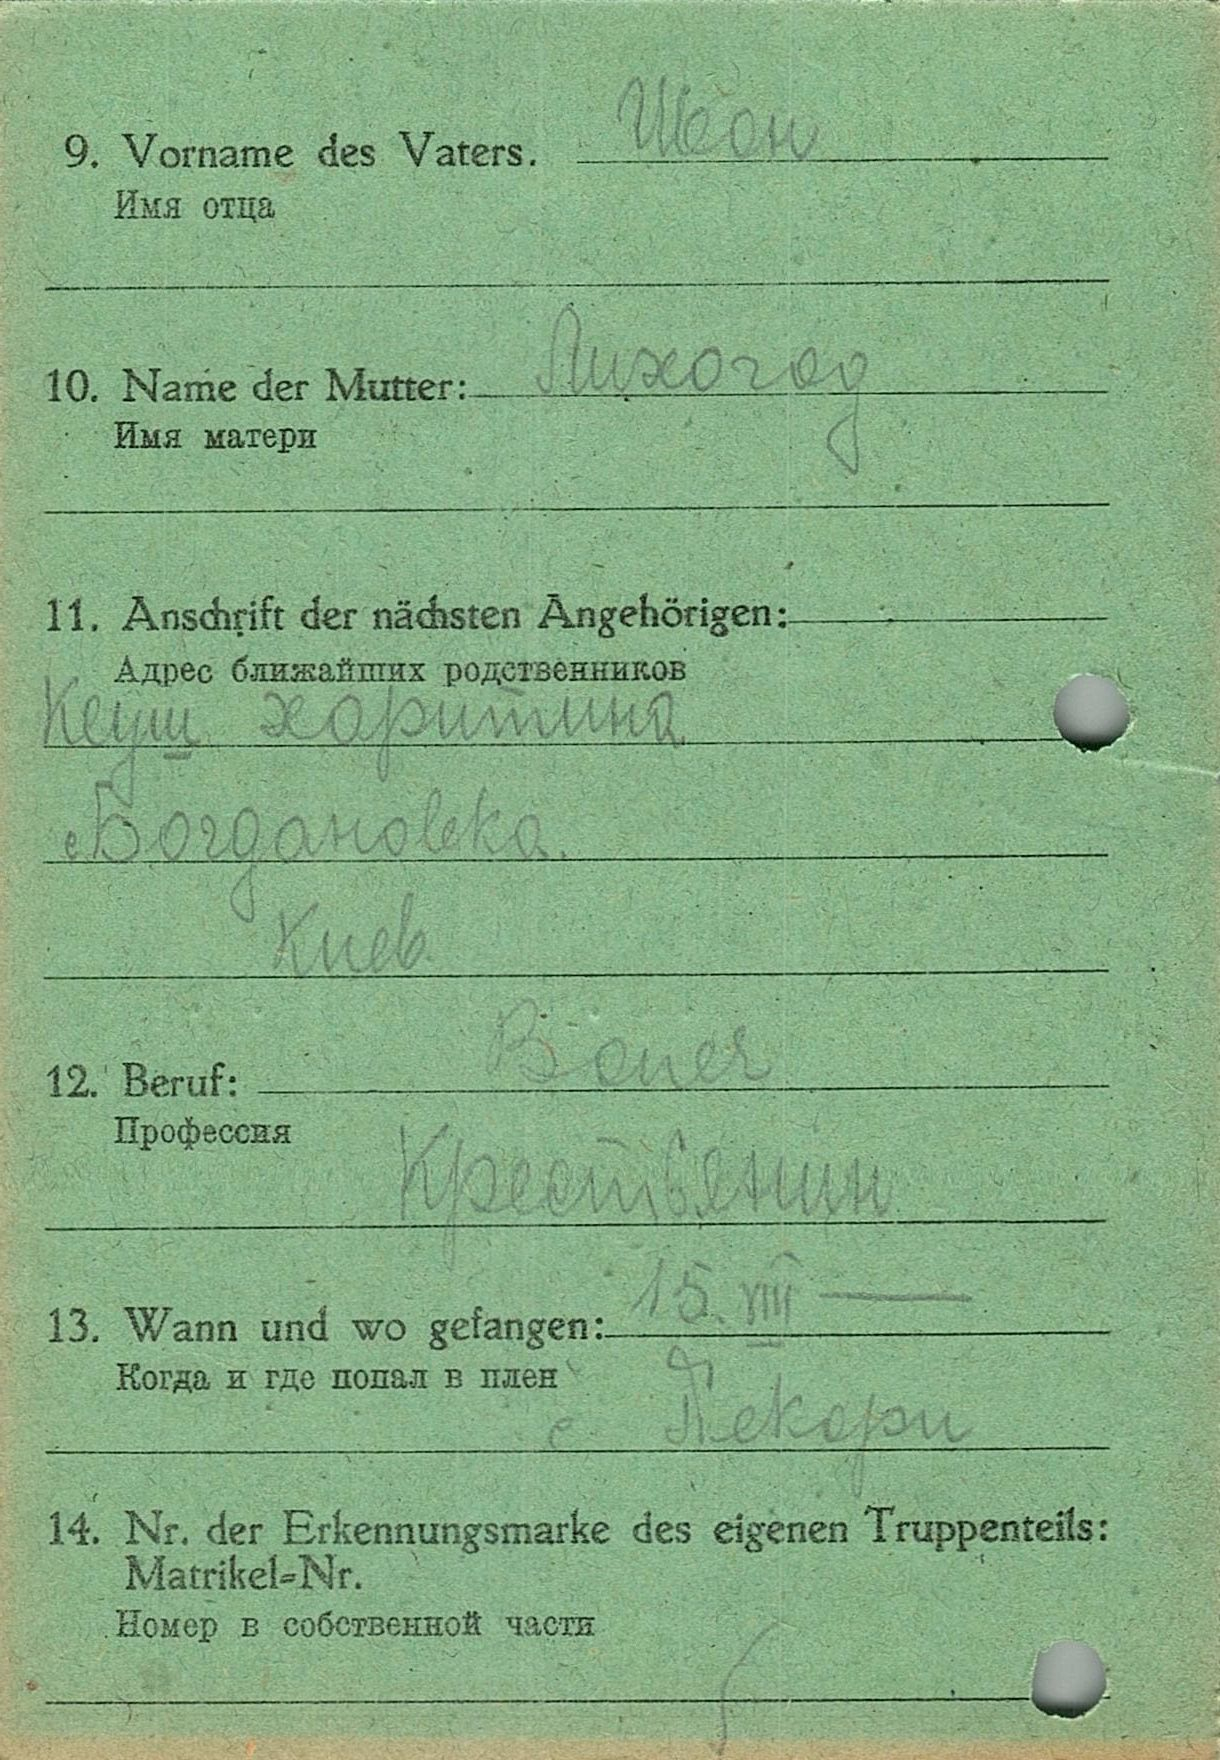 9. Vorname des Vaters. Иван
Имя отца
10. Name der Mutter: Лихогод
Имя матери
11. Anschrift der nächsten Angehörigen:
Адрес ближайших родственников
Кеуш харитина
с Богдановка.
Киев
12. Beruf: Bauer
Профессия
Крестьянин
13. Wann und wo gefangen: 15. VIII —
Когда и где попал в плен
с Пекари
14. Nr. der Erkennungsmarke des eigenen Truppenteils:
Matrikel-Nr.
Номер в собственной части